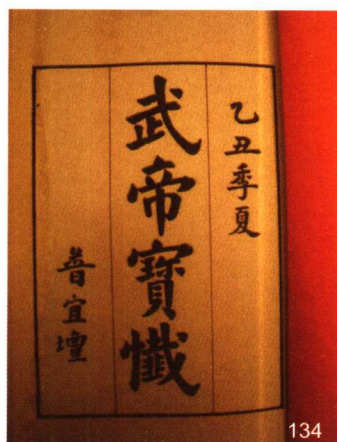 乙丑季夏
武帝寶懺
普宜壇
134